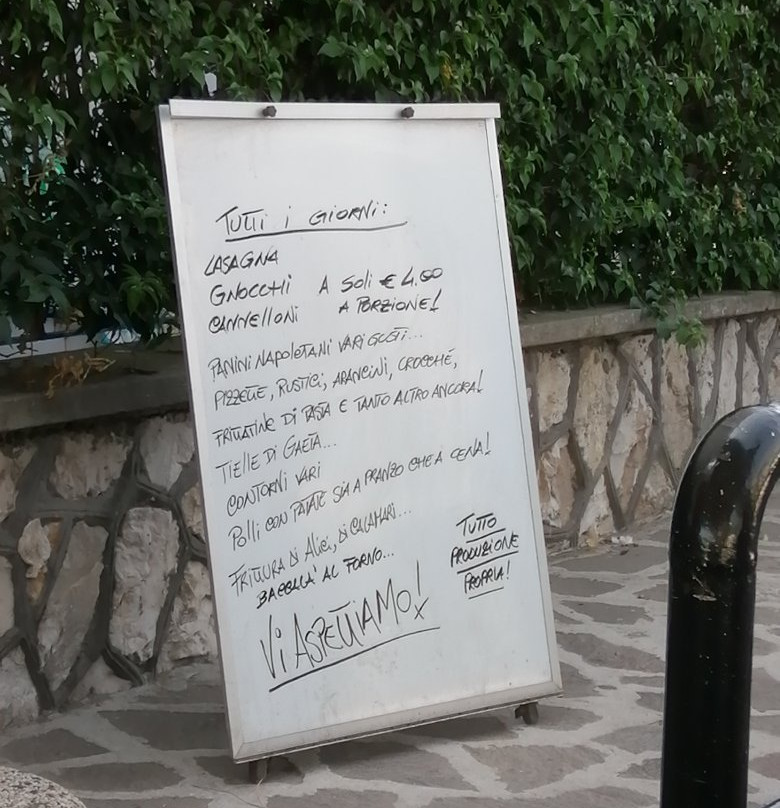 TUTTI i GiORNi:
LASAGNA
GNOCCHI A SOLi € 4.00
CANNELLONI A PORZIONE!
PANINI NAPOLETANI VARI GUSTI...
PIZZETTE, RUSTICI, ARANCINI, CROCCHÉ,
FRITTATINE DI PASTA E TANTO ALTRO ANCORA!
TIELLE DI GAETA...
CONTORNI VARI
POLLI CON PATATE SIA A PRANZO CHE A CENA!
FRITTURA DI ALICI, DI CALAMARI...
BACCALA' AL FORNO...
TUTTO
PRODUZIONE
PROPRIA!
Vi ASPETTIAMO!